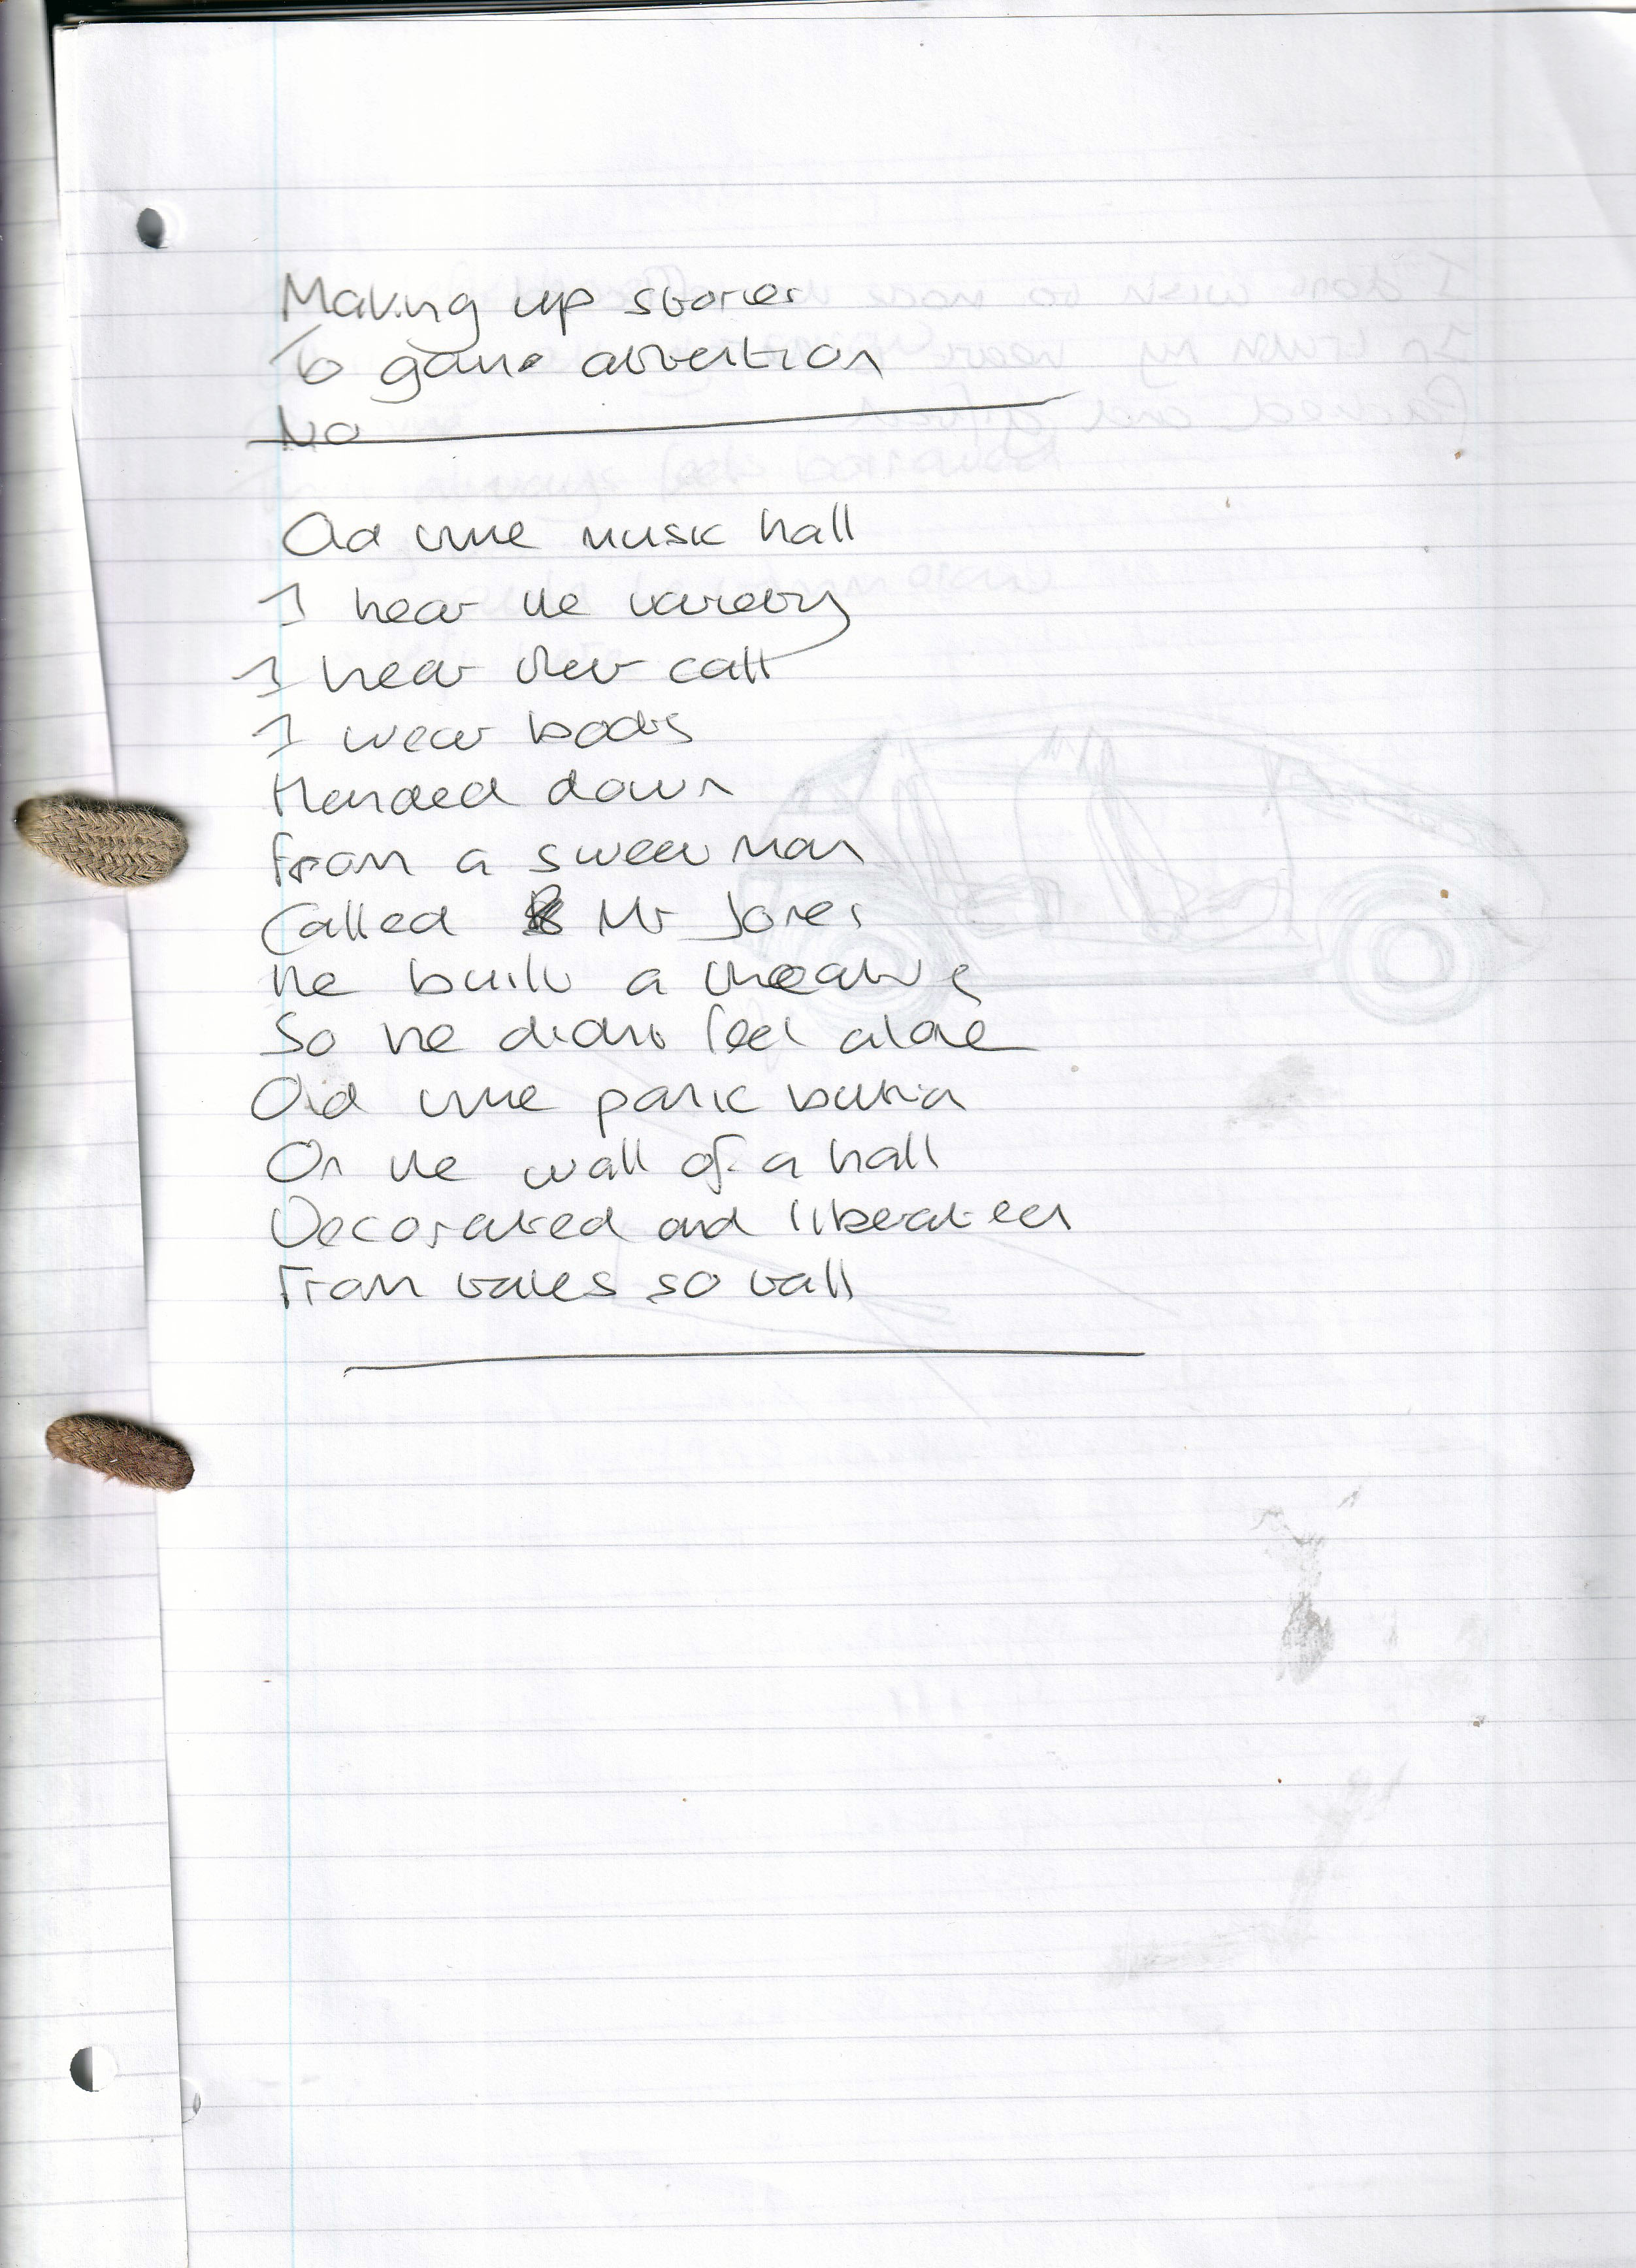 Making up stories
To gain attention
No
Old time music hall
I hear the variety
I hear their call
I wear boots
Handed down
From a sweet man
Called Mr Jones
He built a theatre
So he didn't feel alone
Old time panic button
On the wall of a hall
Decorated and liberated
From tales so tall